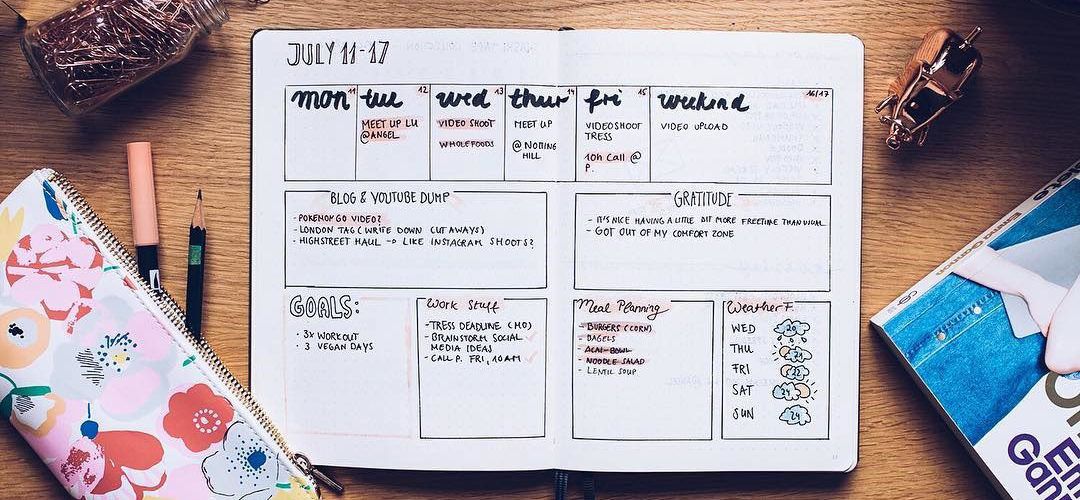 JULY 11-17
mon 11
tue 12
MEET UP LU
@ANGEL
wed 13
VIDEO SHOOT
WHOLEFOODS
thur 14
MEET UP
@ NOTTING
HILL
fri 15
VIDEOSHOOT
TRESS
10h Call @
P.
weekend 16/17
VIDEO UPLOAD
BLOG & YOUTUBE DUMP
- POKEMON GO VIDEO?
- LONDON TAG (WRITE DOWN CUT AWAYS)
- HIGHSTREET HAUL → LIKE INSTAGRAM SHOOTS?
GRATITUDE
- IT'S NICE HAVING A LITTLE BIT MORE FREETIME THAN USUAL
- GOT OUT OF MY COMFORT ZONE
GOALS:
• 3x WORKOUT
• 3 VEGAN DAYS
Work Stuff
- TRESS DEADLINE (MO)
- BRAINSTORM SOCIAL
MEDIA IDEAS
- CALL P. FRI, 10AM
Meal Planning
- BURGERS (CORN)
- BAGELS
- ACAI-BOWL
- NOODLE SALAD
- LENTIL SOUP
Weather F.
WED 20
THU
FRI 22
SAT 24
SUN 24
Emma Gannon